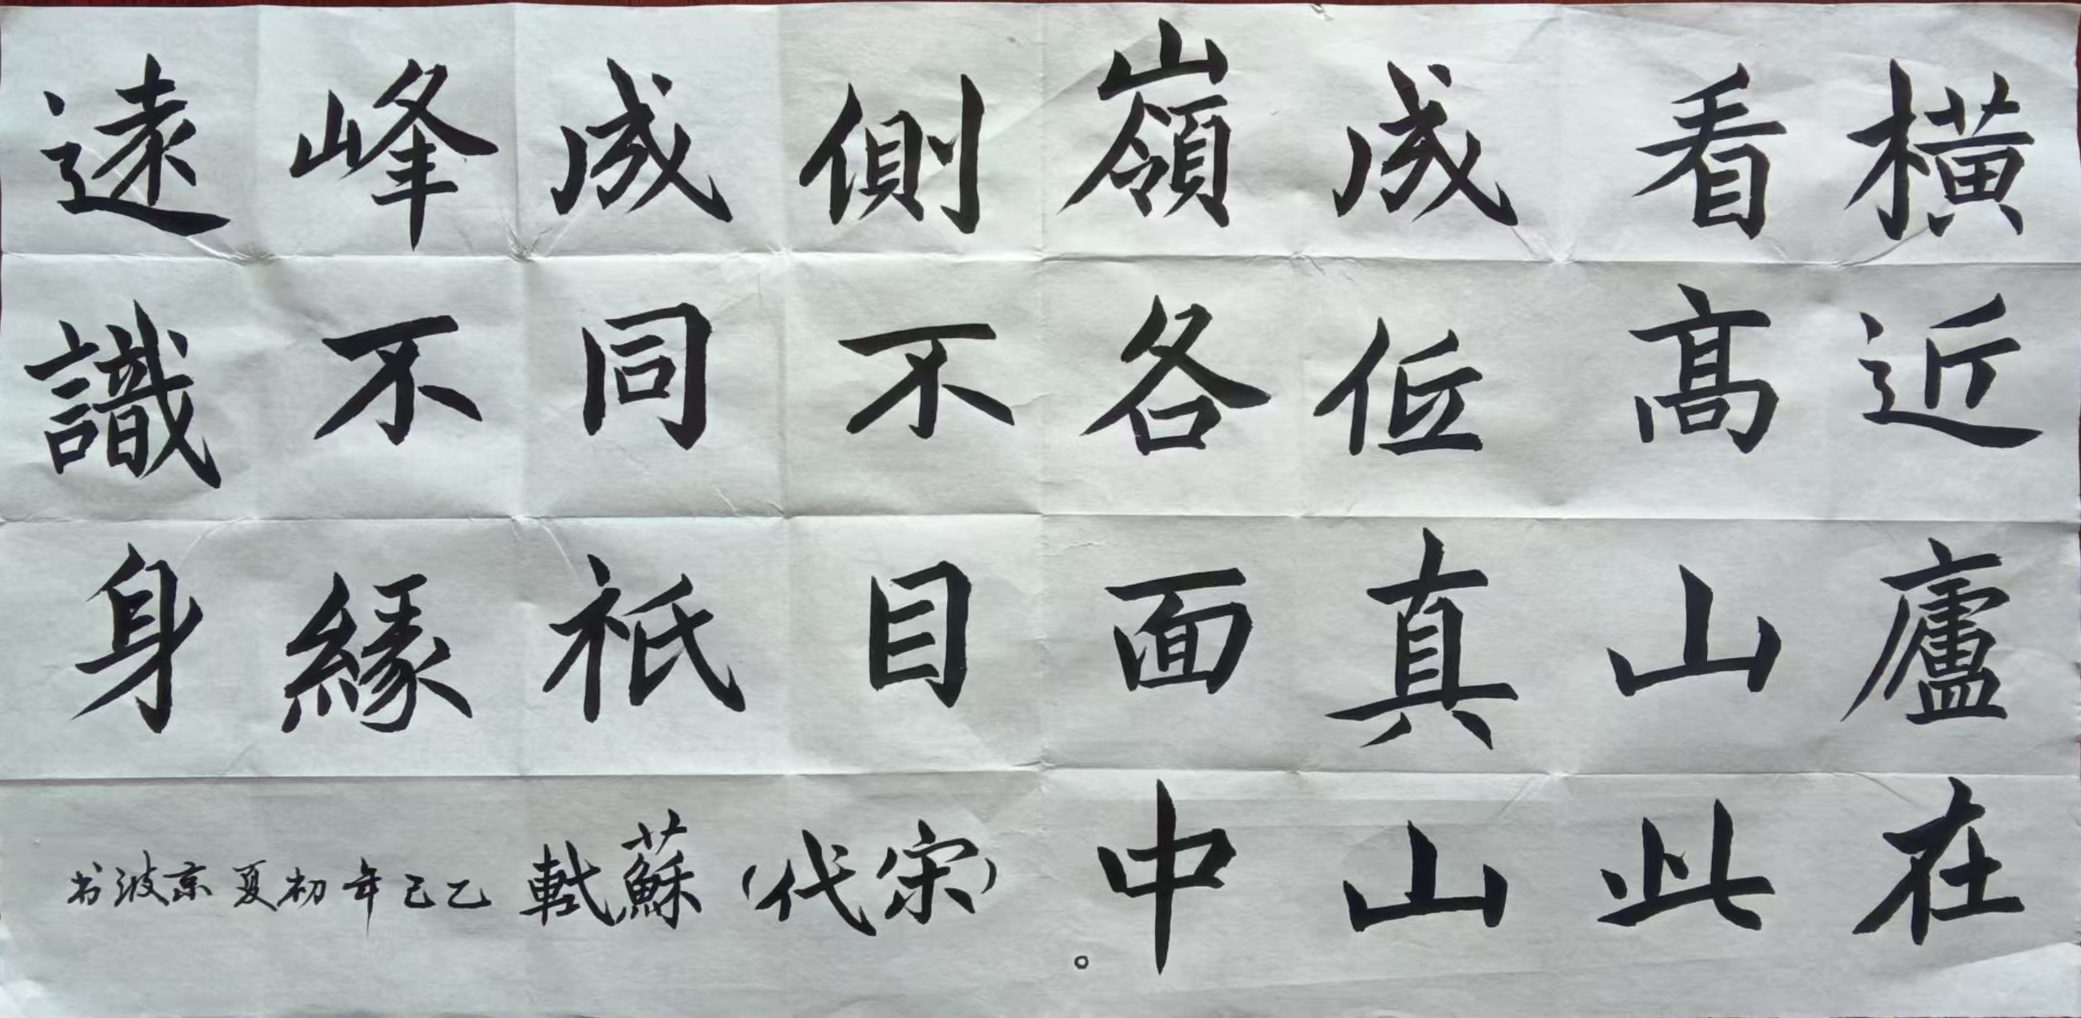 橫看成嶺側成峰遠
近髙低各不同不識
廬山真面目祇緣身
在此山中。(宋代)蘇軾 乙巳年初夏京波书